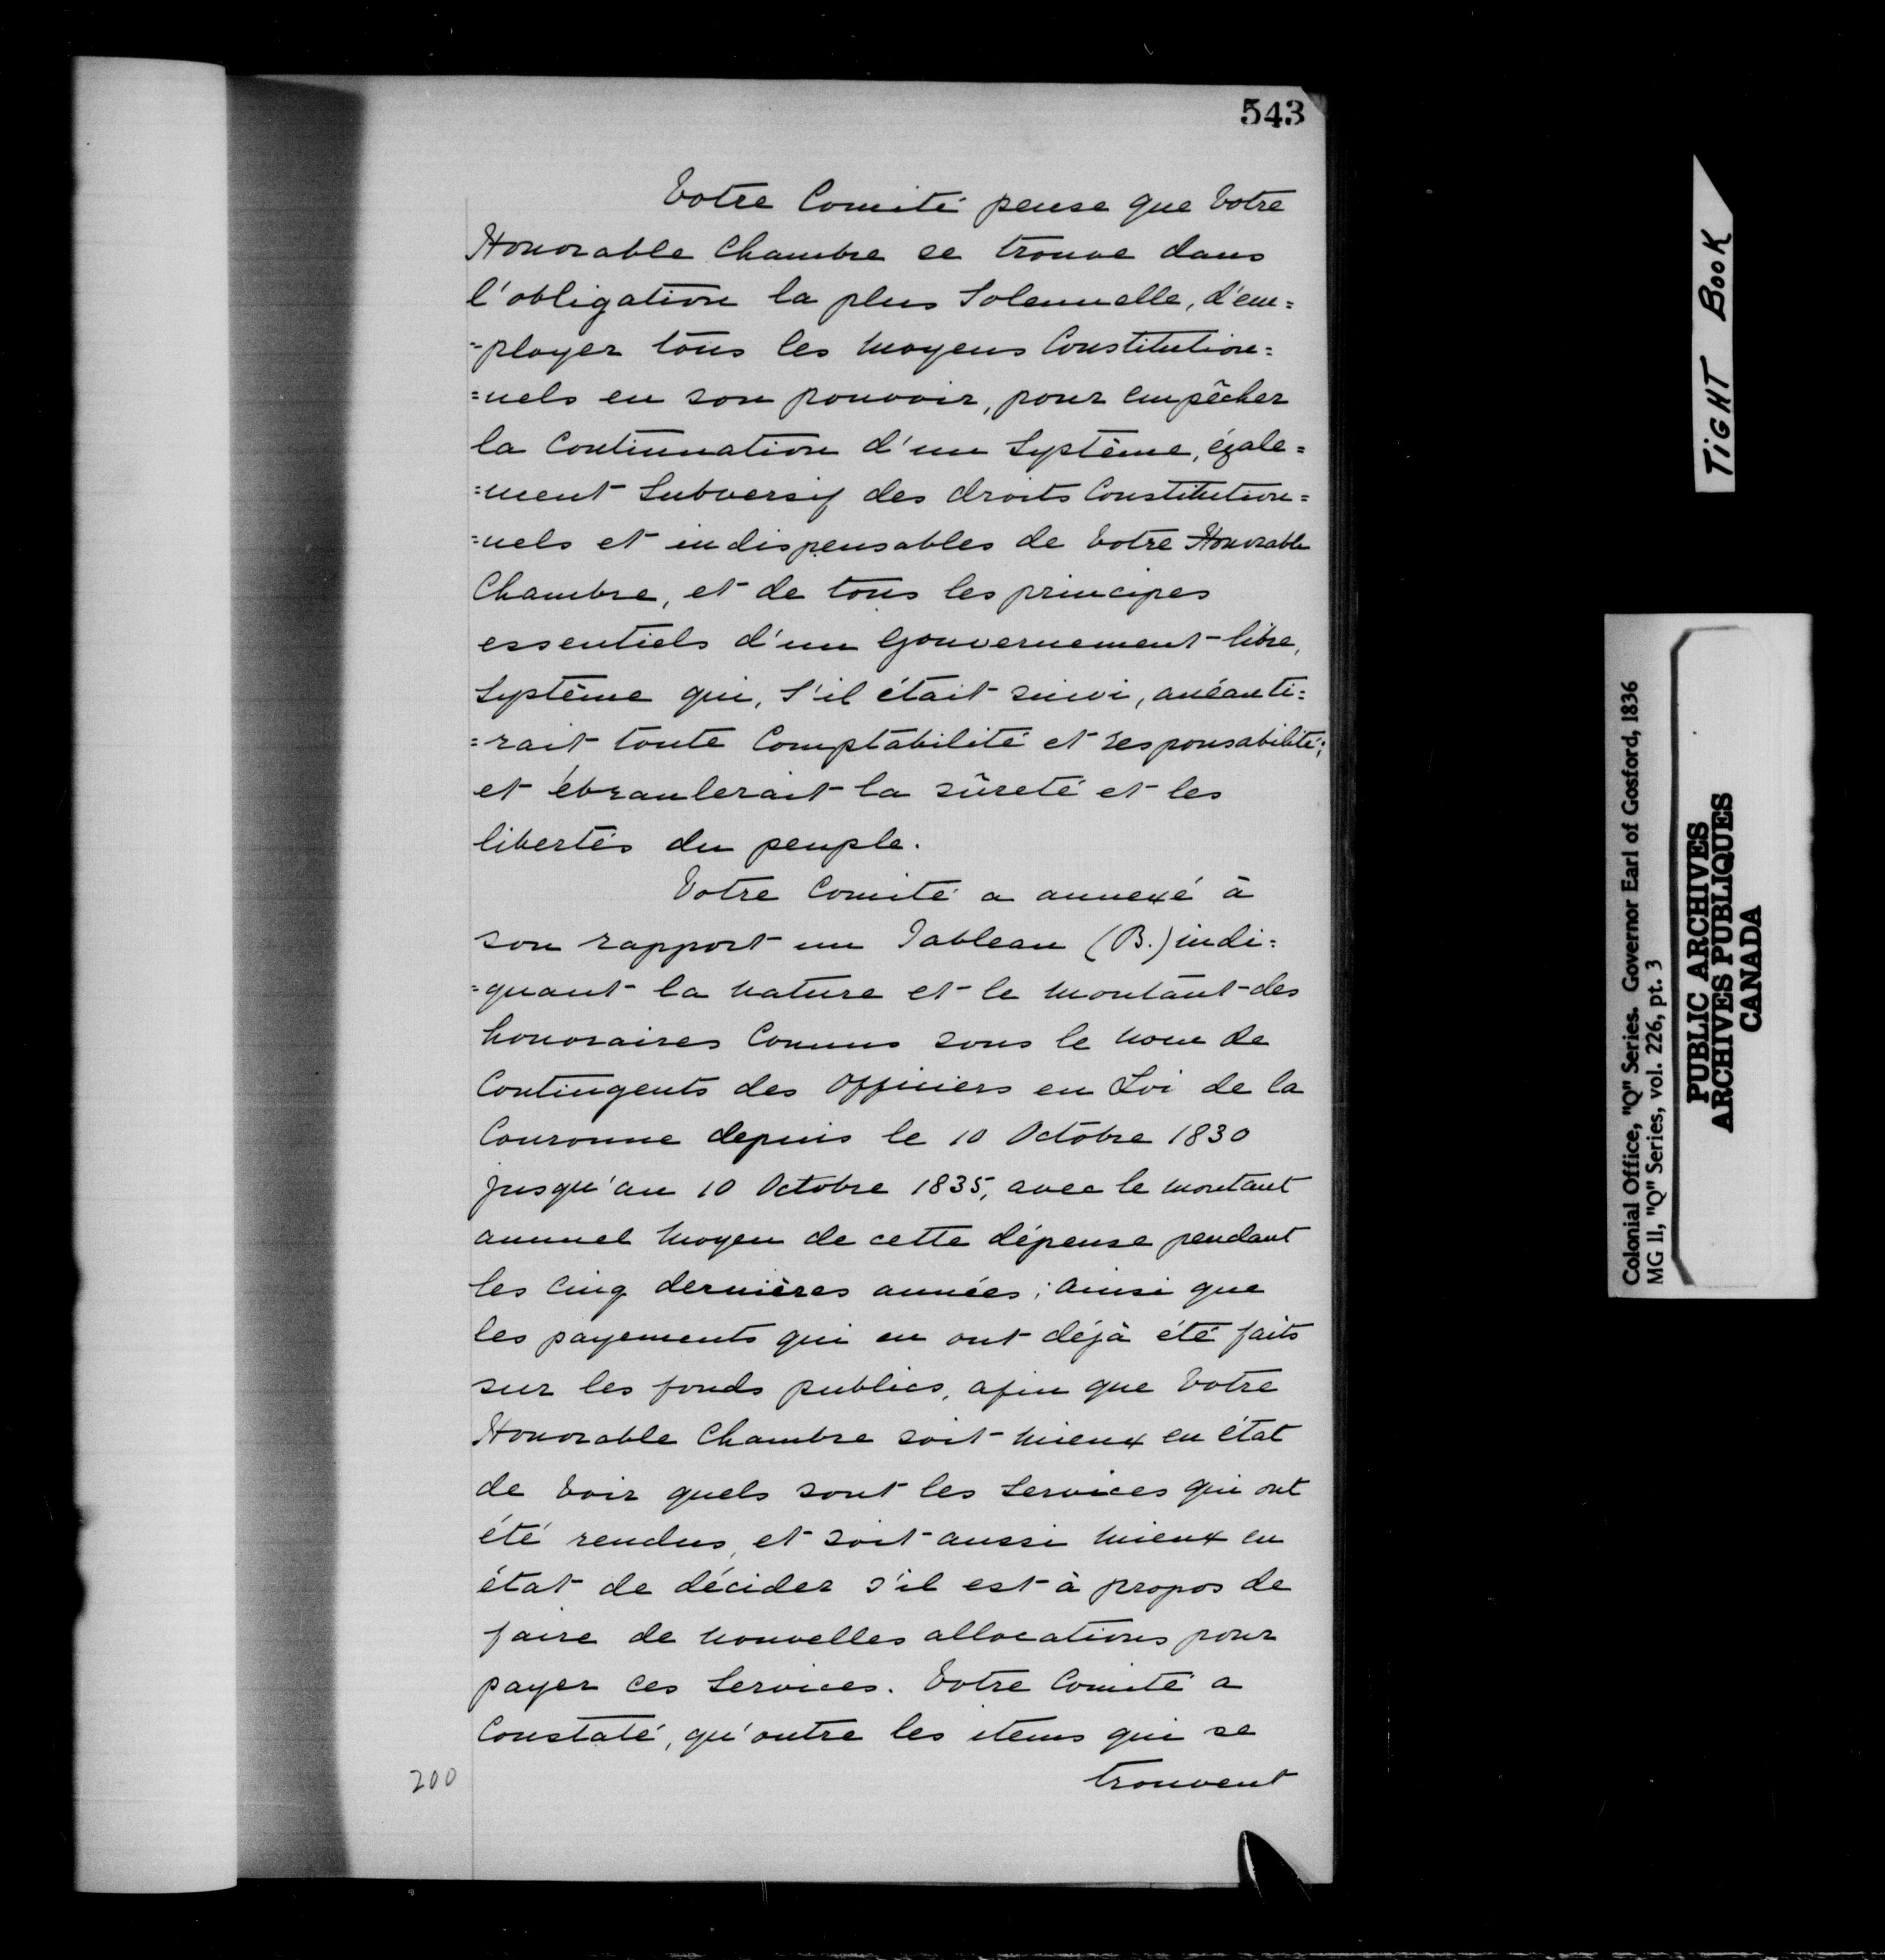 543
Votre Comité pense que Votre
Honorable Chambre se trouve dans
l'obligation la plus Solennelle, d'em=
=ployer tous les Moyens Constitution=
=nels en son pouvoir, pour empêcher
la Continuation d'un Système, égale=
=ment Subversif des droits Constitution=
=nels et indispensables de Votre Honorable
Chambre, et de tous les principes
essentiels d'un Gouvernement libre,
Système qui, S'il était suivi, anéanti=
=rait toute Comptabilité et responsabilité;
et ébranlerait la sûreté et les
libertés du peuple.
Votre Comité a annexé à
son rapport un Tableau (B.) indi=
=quant la Nature et le Montant des
honoraires Connus sous le Nom de
Contingents des Officiers en Loi de la
Couronne depuis le 10 Octobre 1830
jusqu'au 10 Octobre 1835, avec le Montant
annuel Moyen de cette dépense pendant
les Cinq dernières années; Ainsi que
les payements qui en ont déjà été faits
sur les fonds publics, afin que Votre
Honorable Chambre soit Mieux en état
de Voir quels sont les Services qui ont
été rendus, et soit aussi Mieux en
état de décider s'il est à propos de
faire de Nouvelles allocations pour
payer Ces Services. Votre Comité a
Constaté, qu'outre les items qui se
trouvent
200
TIGHT BOOK
Colonial Office, "Q" Series. Governor Earl of Gosford, 1836
MG 11, "Q" Series, vol. 226, pt. 3
PUBLIC ARCHIVES
ARCHIVES PUBLIQUES
CANADA